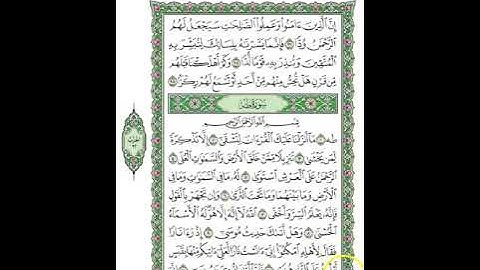 إِنَّ ٱلَّذِينَ ءَامَنُوا۟ وَعَمِلُوا۟ ٱلصَّـٰلِحَـٰتِ سَيَجْعَلُ لَهُمُ
ٱلرَّحْمَـٰنُ وُدًّا ٩٦ فَإِنَّمَا يَسَّرْنَـٰهُ بِلِسَانِكَ لِتُبَشِّرَ بِهِ
ٱلْمُتَّقِينَ وَتُنذِرَ بِهِۦ قَوْمًا لُّدًّا ٩٧ وَكَمْ أَهْلَكْنَا قَبْلَهُم
مِّن قَرْنٍ هَلْ تُحِسُّ مِنْهُم مِّنْ أَحَدٍ أَوْ تَسْمَعُ لَهُمْ رِكْزًۢا ٩٨
سورة طه
بِسْمِ ٱللَّهِ ٱلرَّحْمَـٰنِ ٱلرَّحِيمِ
طه ١ مَآ أَنزَلْنَا عَلَيْكَ ٱلْقُرْءَانَ لِتَشْقَىٰٓ ٢ إِلَّا تَذْكِرَةً
لِّمَن يَخْشَىٰ ٣ تَنزِيلًا مِّمَّنْ خَلَقَ ٱلْأَرْضَ وَٱلسَّمَـٰوَٰتِ ٱلْعُلَى ٤
ٱلرَّحْمَـٰنُ عَلَى ٱلْعَرْشِ ٱسْتَوَىٰ ٥ لَهُۥ مَا فِى ٱلسَّمَـٰوَٰتِ وَمَا فِى
ٱلْأَرْضِ وَمَا بَيْنَهُمَا وَمَا تَحْتَ ٱلثَّرَىٰ ٦ وَإِن تَجْهَرْ بِٱلْقَوْلِ
فَإِنَّهُۥ يَعْلَمُ ٱلسِّرَّ وَأَخْفَى ٧ ٱللَّهُ لَآ إِلَـٰهَ إِلَّا هُوَ لَهُ ٱلْأَسْمَآءُ
ٱلْحُسْنَىٰ ٨ وَهَلْ أَتَىٰكَ حَدِيثُ مُوسَىٰٓ ٩ إِذْ رَءَا نَارًا
فَقَالَ لِأَهْلِهِ ٱمْكُثُوٓا۟ إِنِّىٓ ءَانَسْتُ نَارًا لَّعَلِّىٓ ءَاتِيكُم مِّنْهَا بِقَبَسٍ